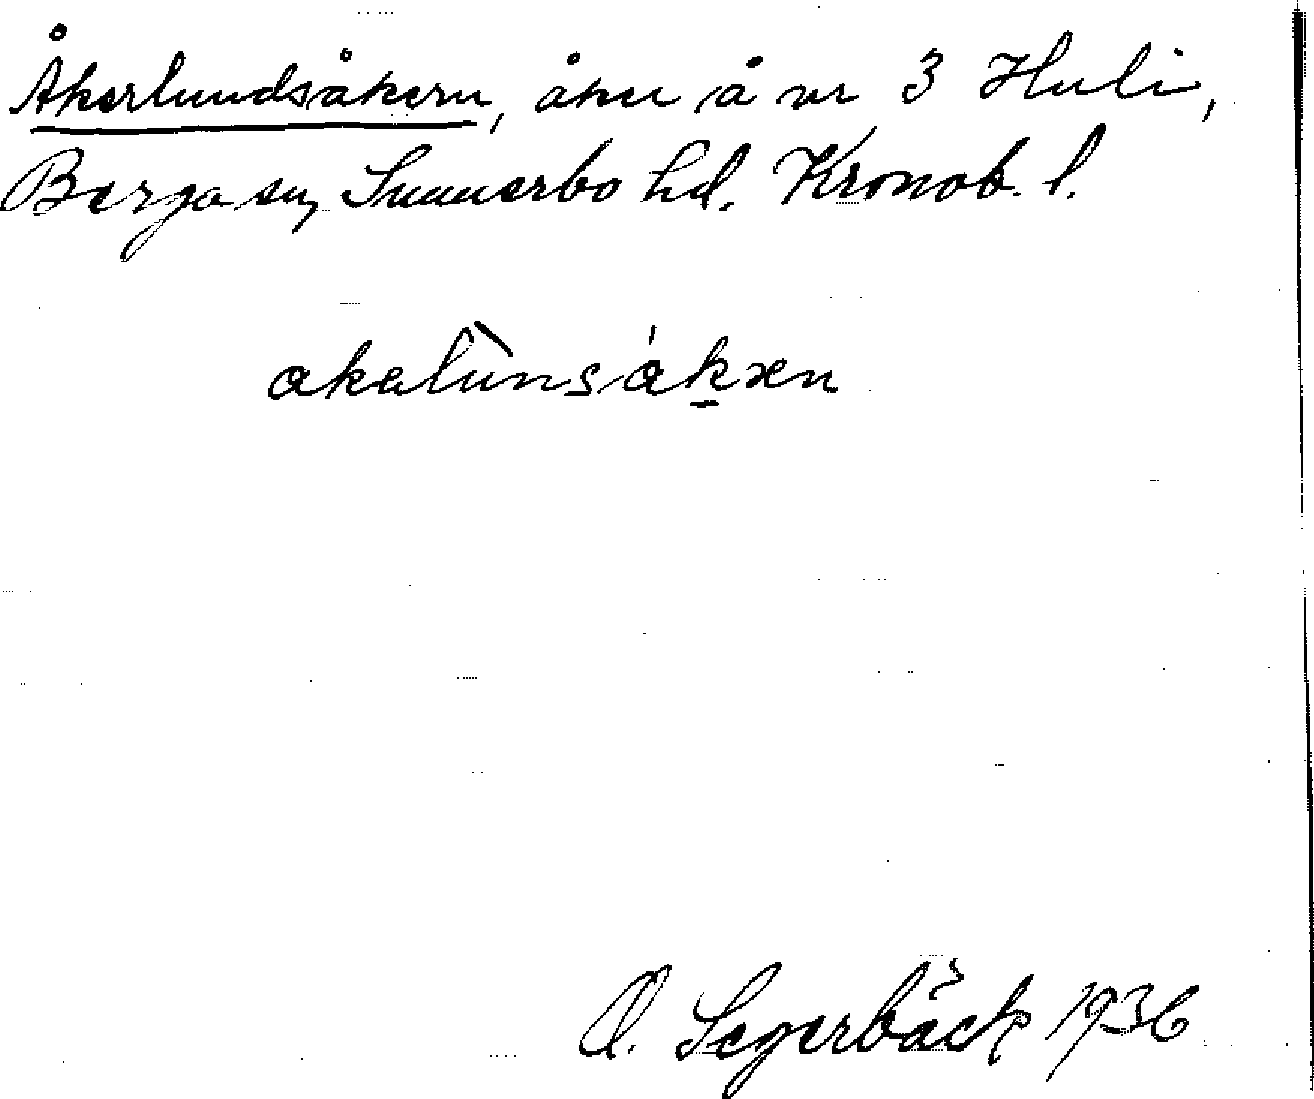 Åkerlundsåkern, åker å nr 3 Huli,
Berga sn, Sunnerbo hd. Kronob. l.
akalùnsákxn
O. Segerbäck 1936